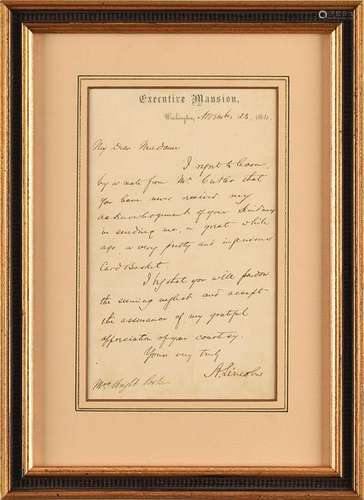 Executive Mansion,
Washington, 186
My Dear Madame
I regret to learn
by a note from Mr. that
you have never received my
acknowledgment of your kindness
in sending me, a great while
ago a very pretty and ingenious
Card Basket.
I beg that you will pardon
the seeming neglect and accept
the assurance of my grateful
appreciation of your courtesy.
Yours very truly
A. Lincoln
Mrs